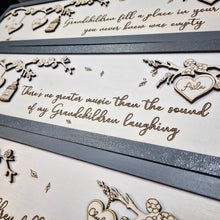 Grandchildren fill a place in your
you never knew was empty
Arlo
There's no greater music than the sound
of my Grandchildren laughing